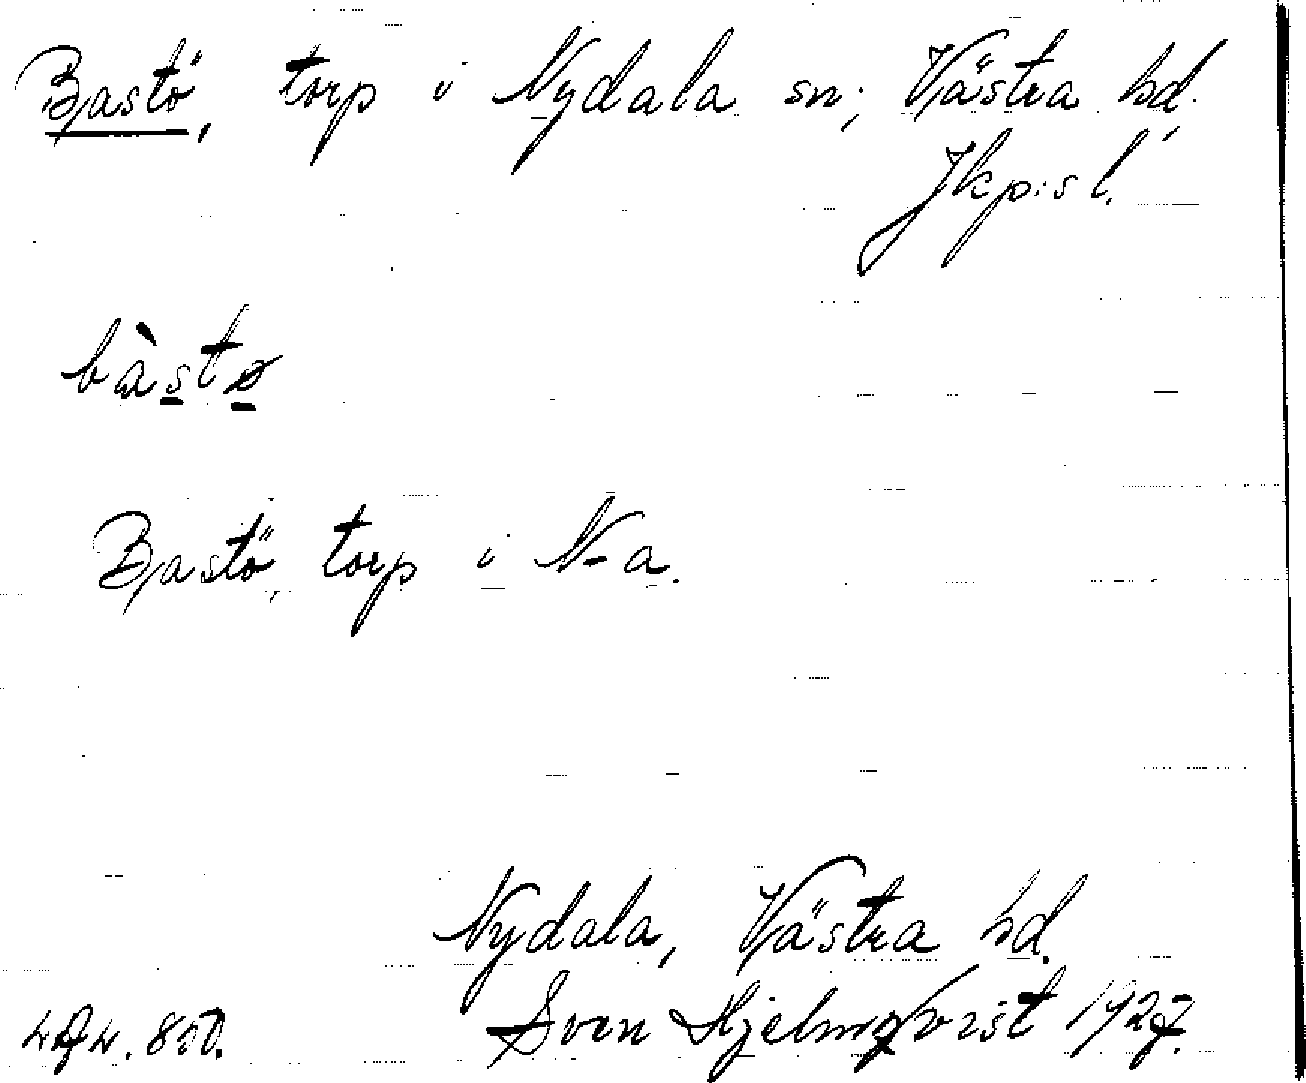 Bastö, torp i Nydala sn; Västra hd.
Jkp:s l.
bàstø
Bastö, torp i N-a.
Nydala, Västra hd.
Sven Hjelmqvist 1927.